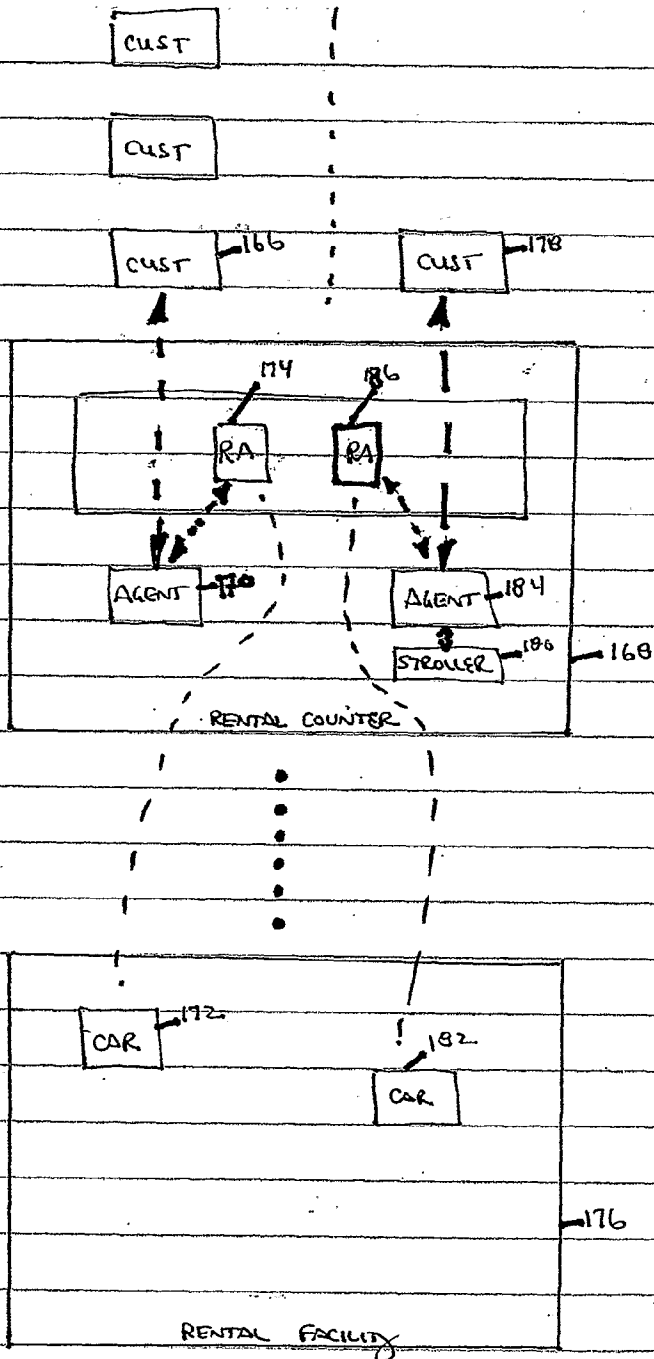 CUST
CUST
CUST 166
CUST 178
174
RA
RA
AGENT
AGENT 184
STROLLER
168
RENTAL COUNTER
CAR 172
182
CAR
176
RENTAL FACILITY